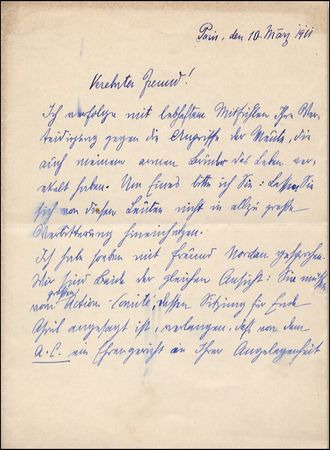 Paris, den 10. März 1911
Verehrter Freund!
Ich verfolge mit lebhaftem Mitfühlen Ihre Ver-
teidigung gegen die Angriffe der Meute, die
auch meinem armen das Leben ver-
ekelt haben. Um Eines bitte ich Sie: lassen Sie
sich von diesen Leuten nicht in allzu große
Verbitterung hineinhetzen.
Ich habe soeben mit Freund Nordau gesprochen.
Wir sind Beide der gleichen Ansicht: Sie müssen
vom großen Action-Comité, dessen Sitzung für Ende
April angesagt ist, verlangen, daß von dem
A.C. ein Ehrengericht in Ihrer Angelegenheit